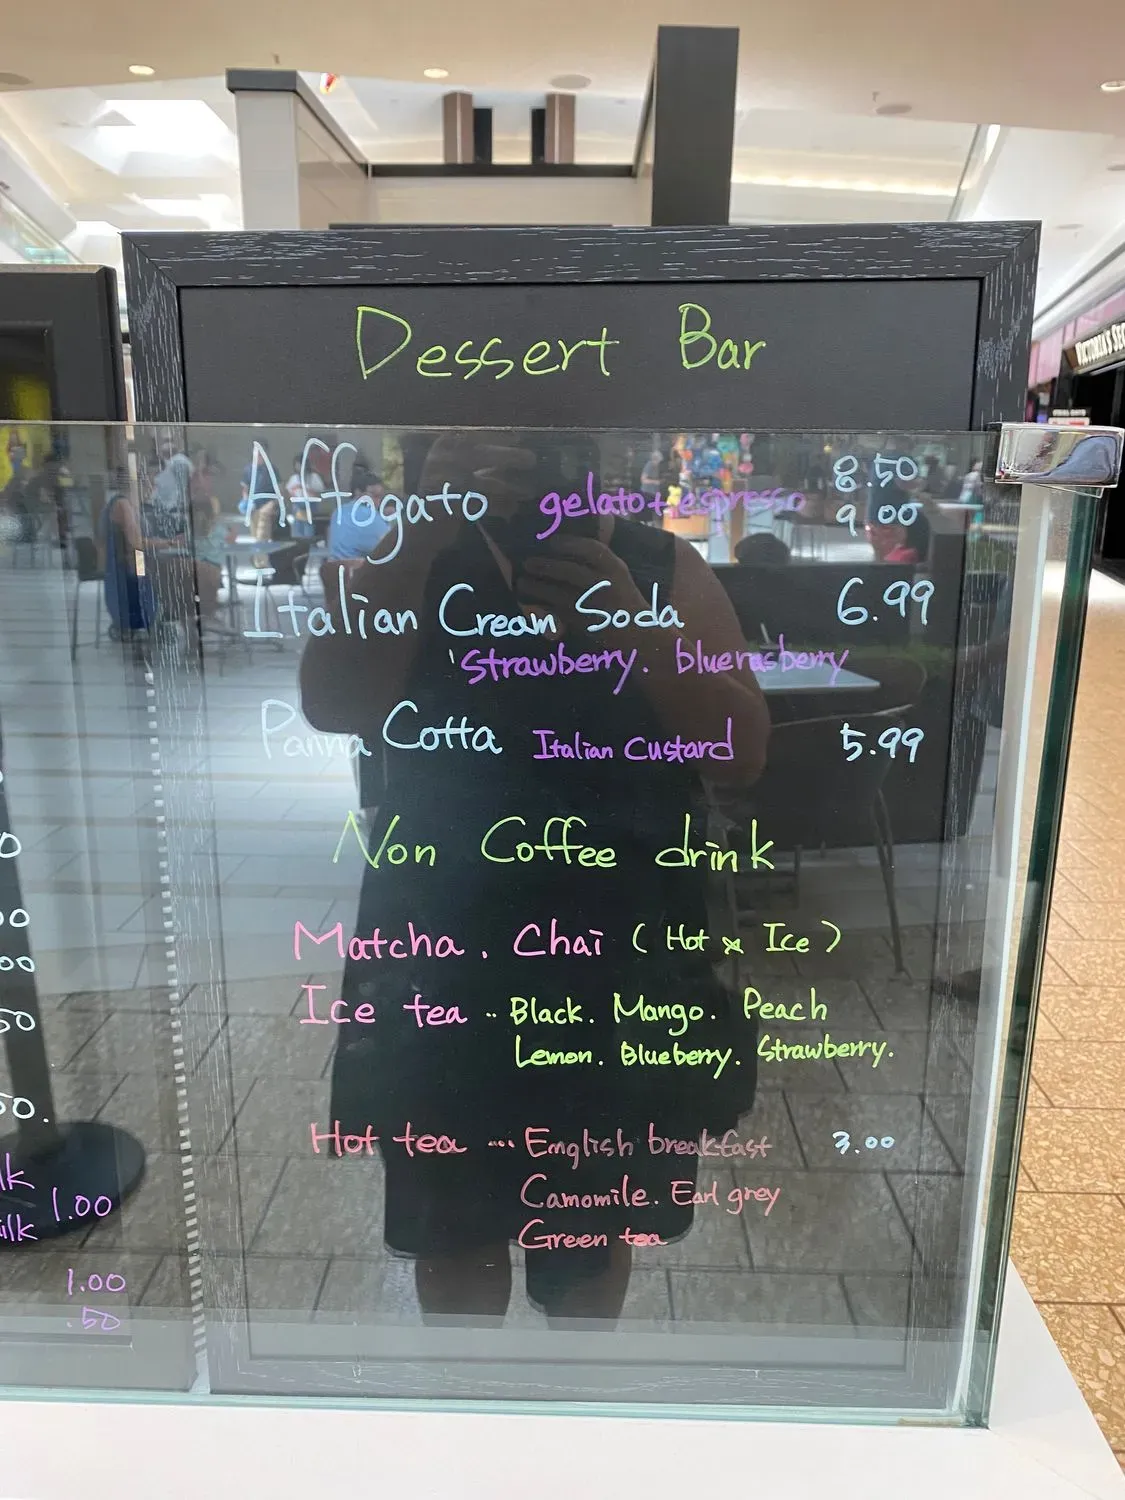 Dessert Bar
Affogato gelato + espresso 8.50
9.00
Italian Cream Soda 6.99
Strawberry. blueraspberry
Panna Cotta Italian Custard 5.99
Non Coffee drink
Matcha. Chai (Hot & Ice)
Ice tea .. Black. Mango. Peach
Lemon. Blueberry. Strawberry.
Hot tea .... English breakfast 3.00
Camomile. Earl grey
Green tea
1.00
1.00
.50
VICTORIA'S